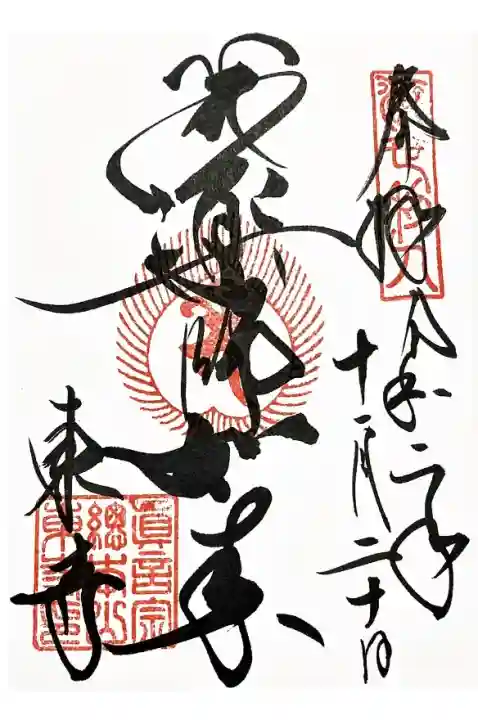 奉拝
令和二年
十一月二十日
薬師如来
東寺
眞言宗
總本山